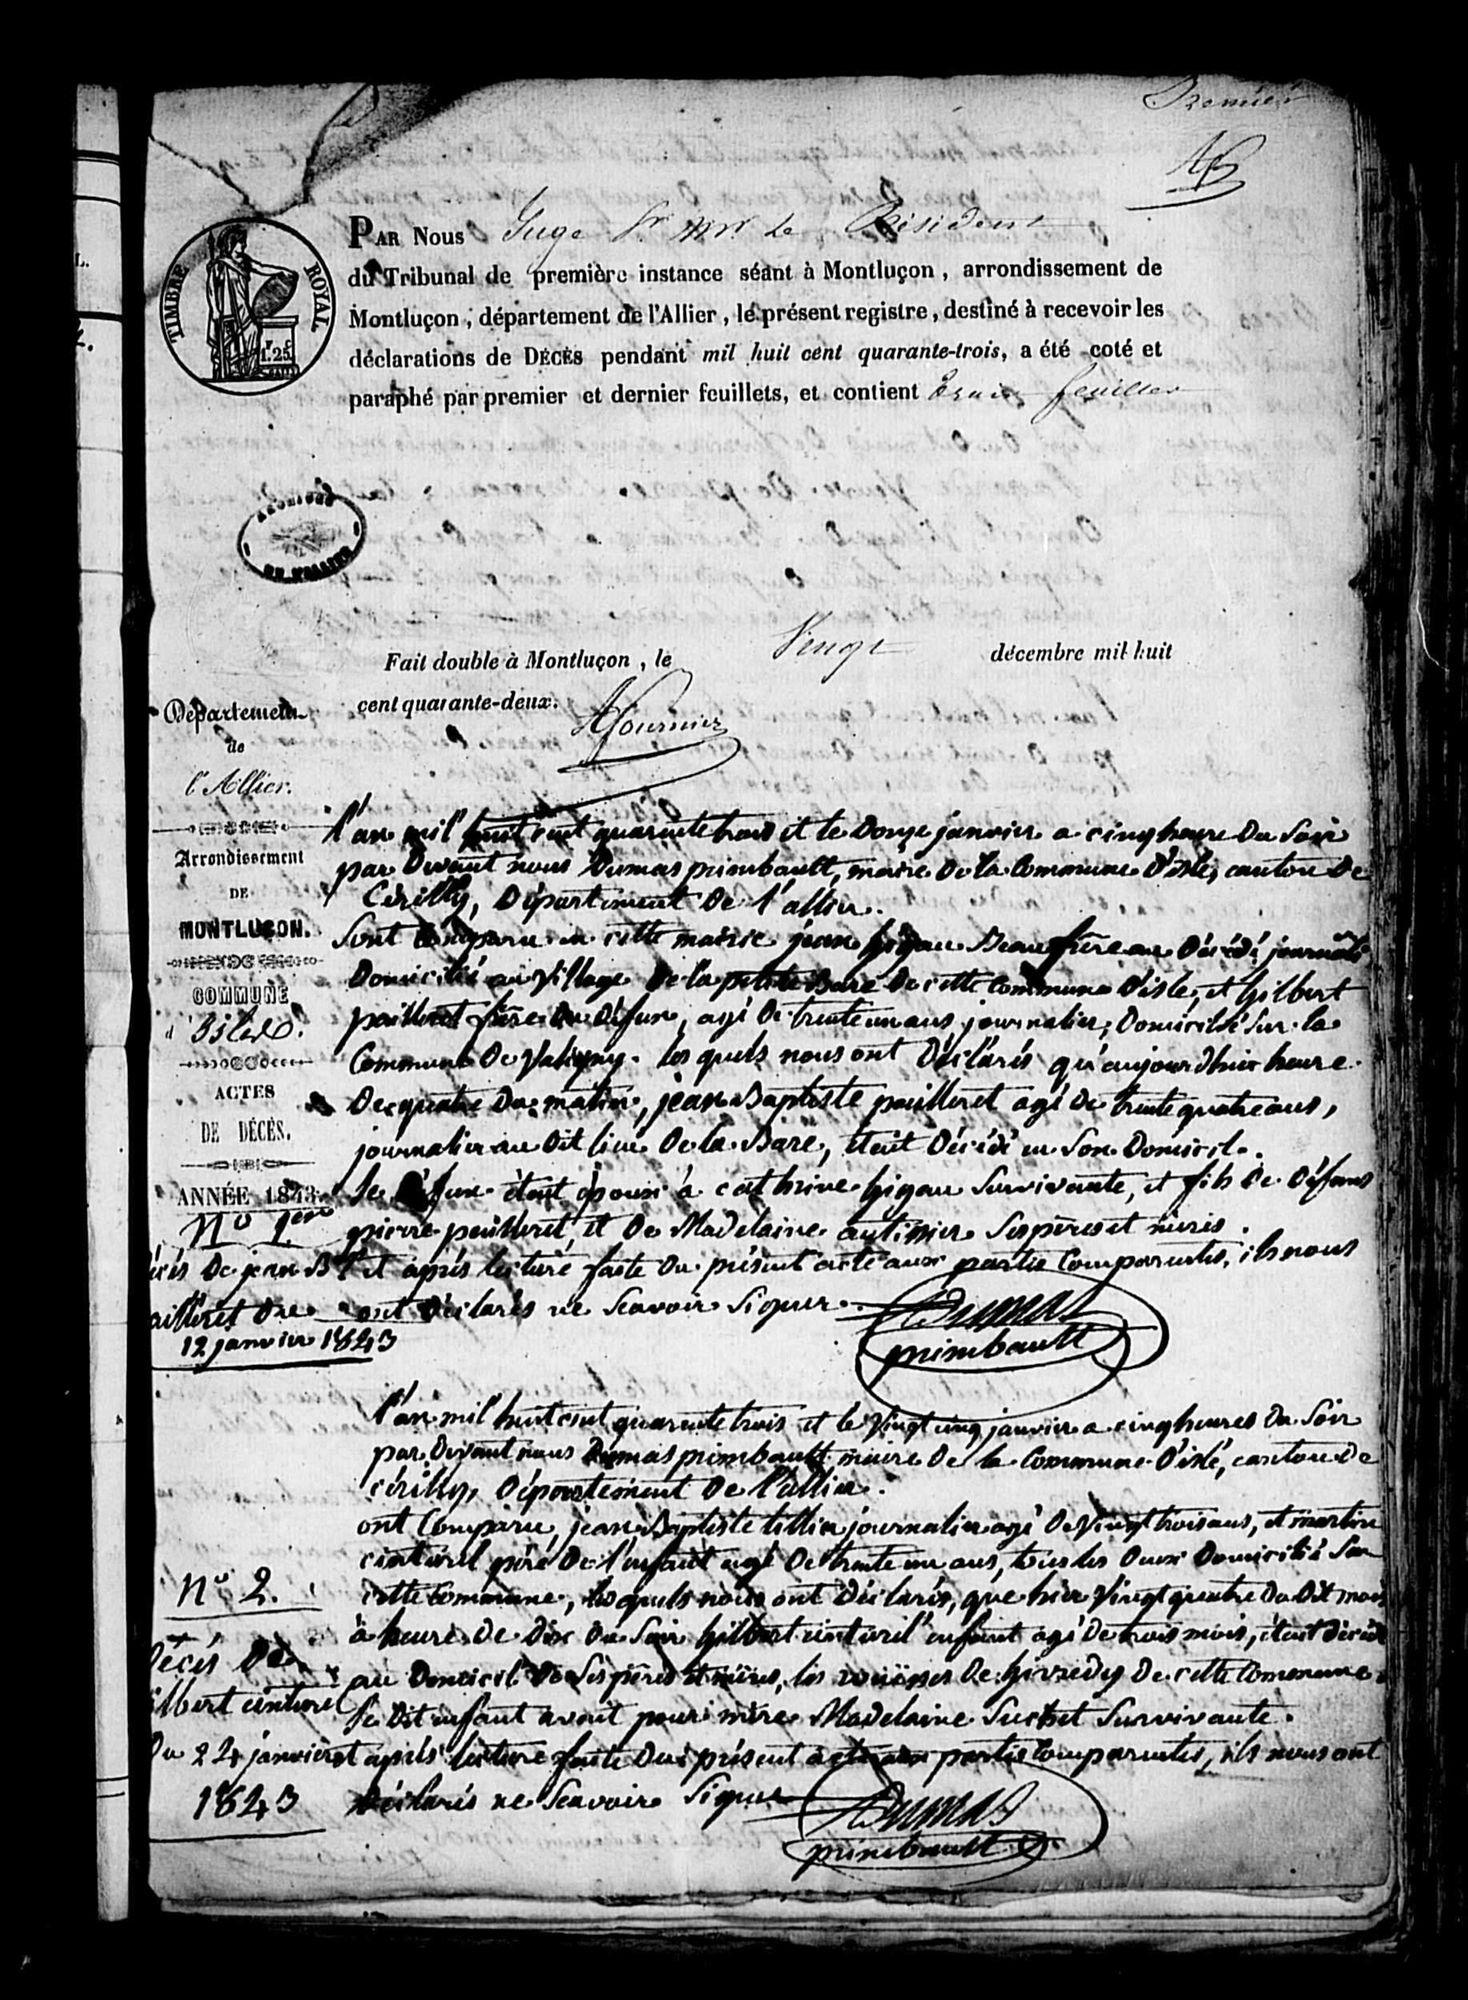 Premier
AF
PAR NOUS Juge Pr Mr le Président
du Tribunal de première instance séant à Montluçon, arrondissement de
Montluçon, département de l'Allier, le présent registre, destiné à recevoir les
déclarations de DÉCÈS pendant mil huit cent quarante-trois, a été coté et
paraphé par premier et dernier feuillets, et contient feuillets
TIMBRE ROYAL
1.25
ARCHIVES
DE L'ALLIER
Fait double à Montluçon, le Vingt décembre mil huit
cent quarante-deux.
AFournier
Département
de
l'Allier.
Arrondissement
DE
MONTLUÇON.
COMMUNE
d'Isle.
ACTES
DE DÉCÈS.
ANNÉE 1843.
No 1er
décès de jean Bte
pailleret Du
12 janvier 1843
l'an mil huit cent quarante trois et le Douze janvier a cinq heure Du Soir
par Devant nous Dumas primbault, maire De la Commune D'isle, canton De
Cérilly, Département De l'allier.
Sont Comparu en cette mairie jean gigau Beau frère au Décédé journalié
Domicilié au Village De la petite Bare De cette Commune D'isle, et gilbert
pailleret frère Du Défun, agé De trente un ans, journalier, Domicilié Sur la
Commune De Valigny. les quels nous ont Déclarés qu'aujourdhui heure
De quatre Du matin, jean Baptiste pailleret agé De trente quatre ans,
journalier au Dit lieu De la Bare, était Décédé en Son Domicil.
le Défun était époux à cathrine gigau Survivante, et fils De Défunt
pierre pailleret, et De Madelaine autissier Ses pères et mères.
Et après lecture faite Du présent acte aux partie Comparentes, ils nous
ont Déclarés ne Scavoir Signer.
Dumas
primbault
No 2.
Décés De
gilbert cinturel
Du 24 janvier
1843
l'an mil huit cent quarente trois et le Vingt cinq janvier a cinq heures Du Soir
par Devant nous Dumas primbault maire De la Commune D'isle, canton De
cérilly, Département De l'allier.
ont Comparu, jean Baptiste tillier journalier agé De Vingt trois ans, et martin
cinturel père De l'enfant agé De trente un ans, tous les Deux Domicilié Sur
cette Commune, les quels nous ont Déclarés, que hier Vingt quatre Du Dit mois
à heure De Dix Du Soir gilbert cinturel enfant agé De trois mois, était Décédé
au Domicil De Ses pères et mères, les De De cette Commune.
le Dit enfant avait pour mère Madelaine Suchet Survivante.
et après lecture faite Du présent acte aux partie Comparentes, ils nous ont
Déclarés ne Scavoir Signer
Dumas
primbault